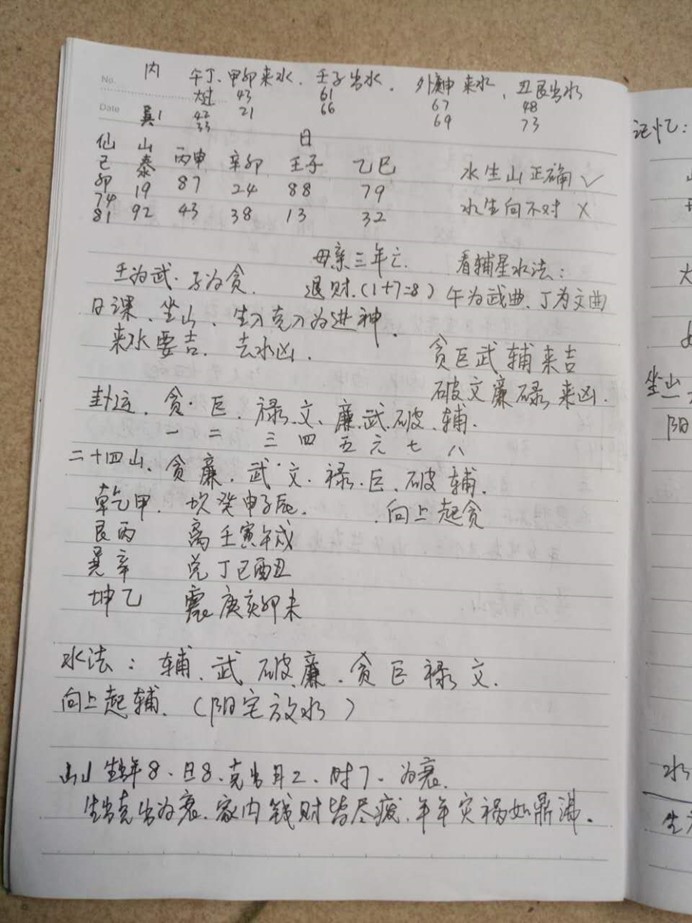 No.
Date
内 午丁、甲卯来水、壬子出水、外庚申来水、丑艮出水
大过 43 61 67 48
巽1 42 21 66 69 73
33
日
仙 山
己 泰 丙申 辛卯 壬子 乙巳 水生山正确 ✓
卯 19 87 24 88 79
74
81 92 43 38 13 32 水生向不对 ×
母亲三年亡. 看辅星水法:
壬为武、子为贪. 退财.(1+7=8) 午为武曲、丁为文曲
日课、坐山、生入克入为进神.
来水要吉、去水凶. 贪巨武辅来吉
破文廉禄来凶.
卦运、贪、巨、禄、文、廉、武、破、辅.
一 二 三 四 五 六 七 八
二十四山、贪廉、武、文、禄、巨、破、辅.
乾甲、坎癸申子辰. 向上起贪
艮丙 离壬寅午戌
巽辛 兑丁巳酉丑
坤乙 震庚亥卯未
水法: 辅、武、破、廉、贪、巨、禄、文.
向上起辅.(阳宅放水)
山 生出年8、日8、克出月2、时7、为衰.
生出克出为衰、家内钱财皆尽疲、年年灾祸如鼎沸.
记忆:
大
坐山
阳
水
生